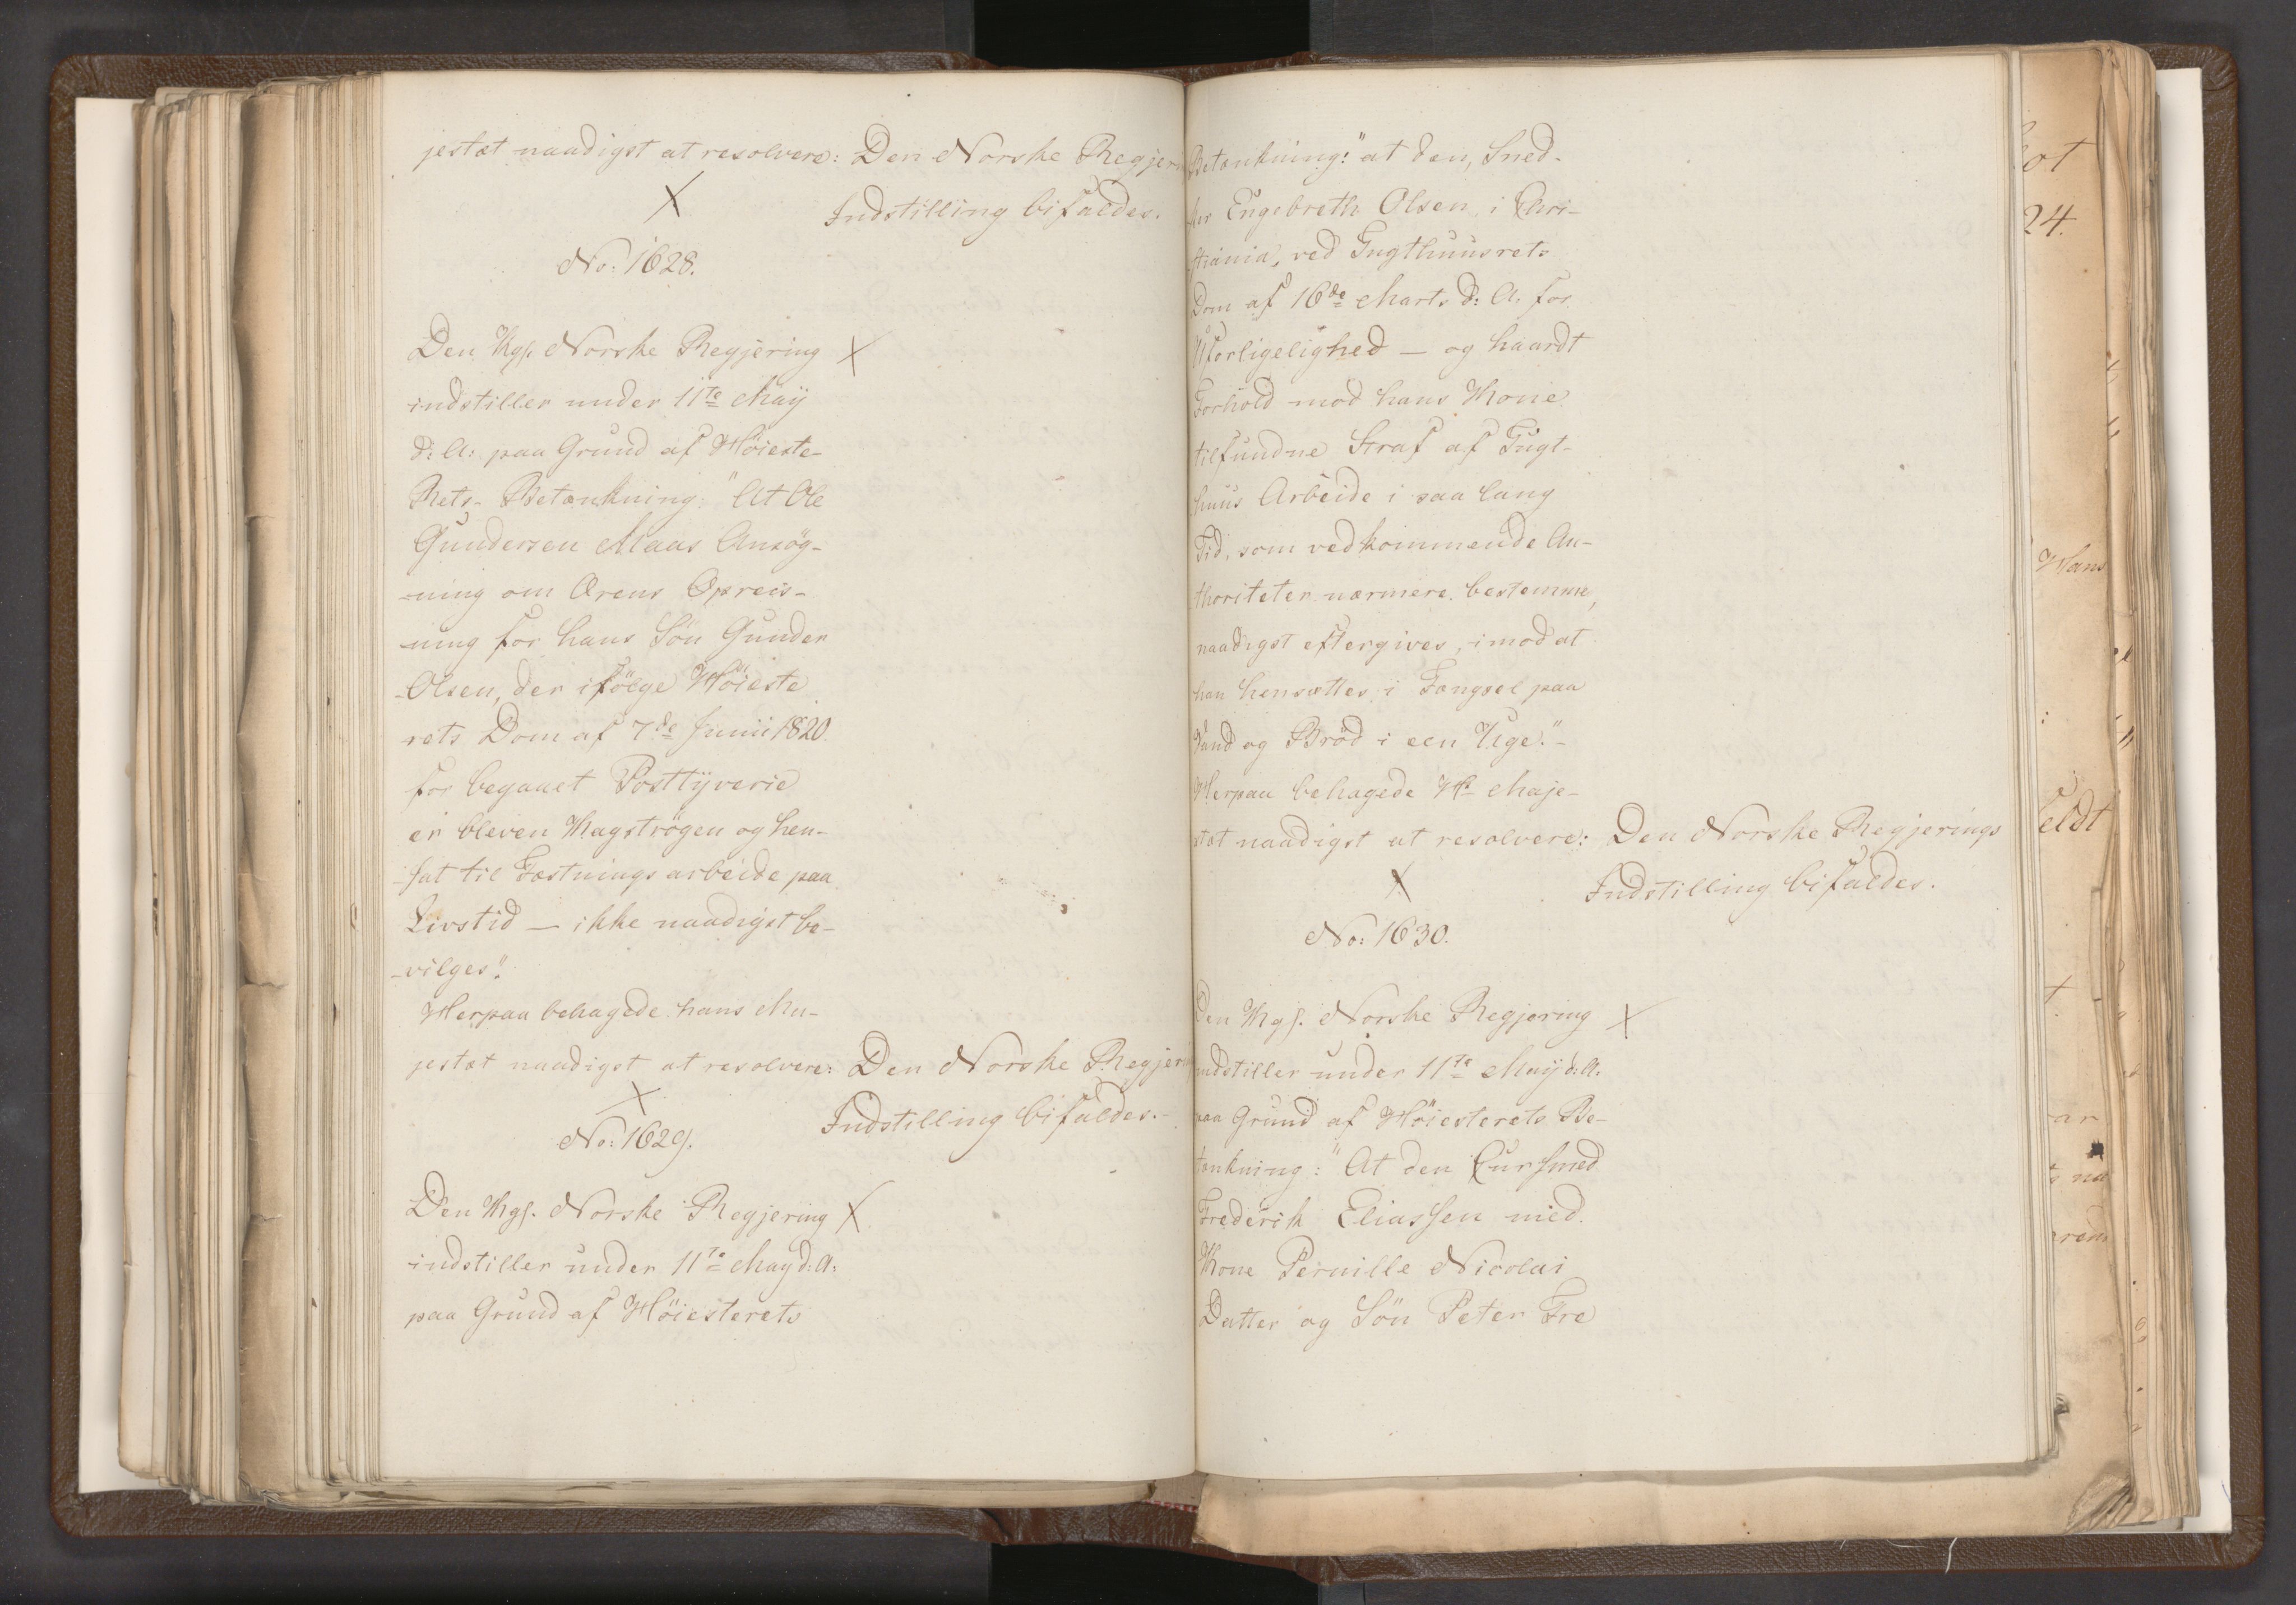 jestæt naadigst at resolvere: Den Norske Regjer
Indstilling bifaldes.
X
No: 1628.
Den Kgs. Norske Regjering X
indstiller under 11te May
d: A: paa Grund af Höieste-
Rets- Betænkning: "At Ole
Gundersen Maas Ansög-
-ning om Ærens Opreis-
-ning for hans Sön Gunder
-Olsen, der ifölge Höieste
rets Dom af 7de Junii 1820.
for begaaet Posttyverie
er bleven Kagströgen og hen-
-sat til Fæstningsarbeide paa
Livstid — ikke naadigst be-
-vilges".
Herpaa behagede hans Ma-
jestæt naadigst at resolvere: Den Norske Regjer
Indstilling bifaldes.-
X
No: 1629.
Den Kgs. Norske Regjering X
indstiller under 11te May d: A:
paa Grund af Höiesterets
Betænkning: "at den, Sned-
ker Engebreth Olsen i Chri-
stiania, ved Tugthuusrets
Dom af 16de Marts d: A. for
Uforligelighed — og haardt
Forhold mod hans Kone
tilfundne Straf af Tugt-
huus Arbeide i saa lang
Tid, som vedkommende Au-
thoriteter nærmere bestemme,
naadigst eftergives, imod at
han hensættes i Fængsel paa
Vand og Bröd i een Uge."-
Herpaa behagede Hs Maje-
stæt naadigst at resolvere: Den Norske Regjerings
Indstilling bifaldes.
X
No: 1630.
Den Kgs. Norske Regjering X
indstiller under 11te May d: A.
paa Grund af Höiesterets Be-
tænkning: "At den Cursmed
Frederik Eliassen med
Kone Pernille Nicolai
Datter og Sön Peter Fre
24.
Hans
eldt